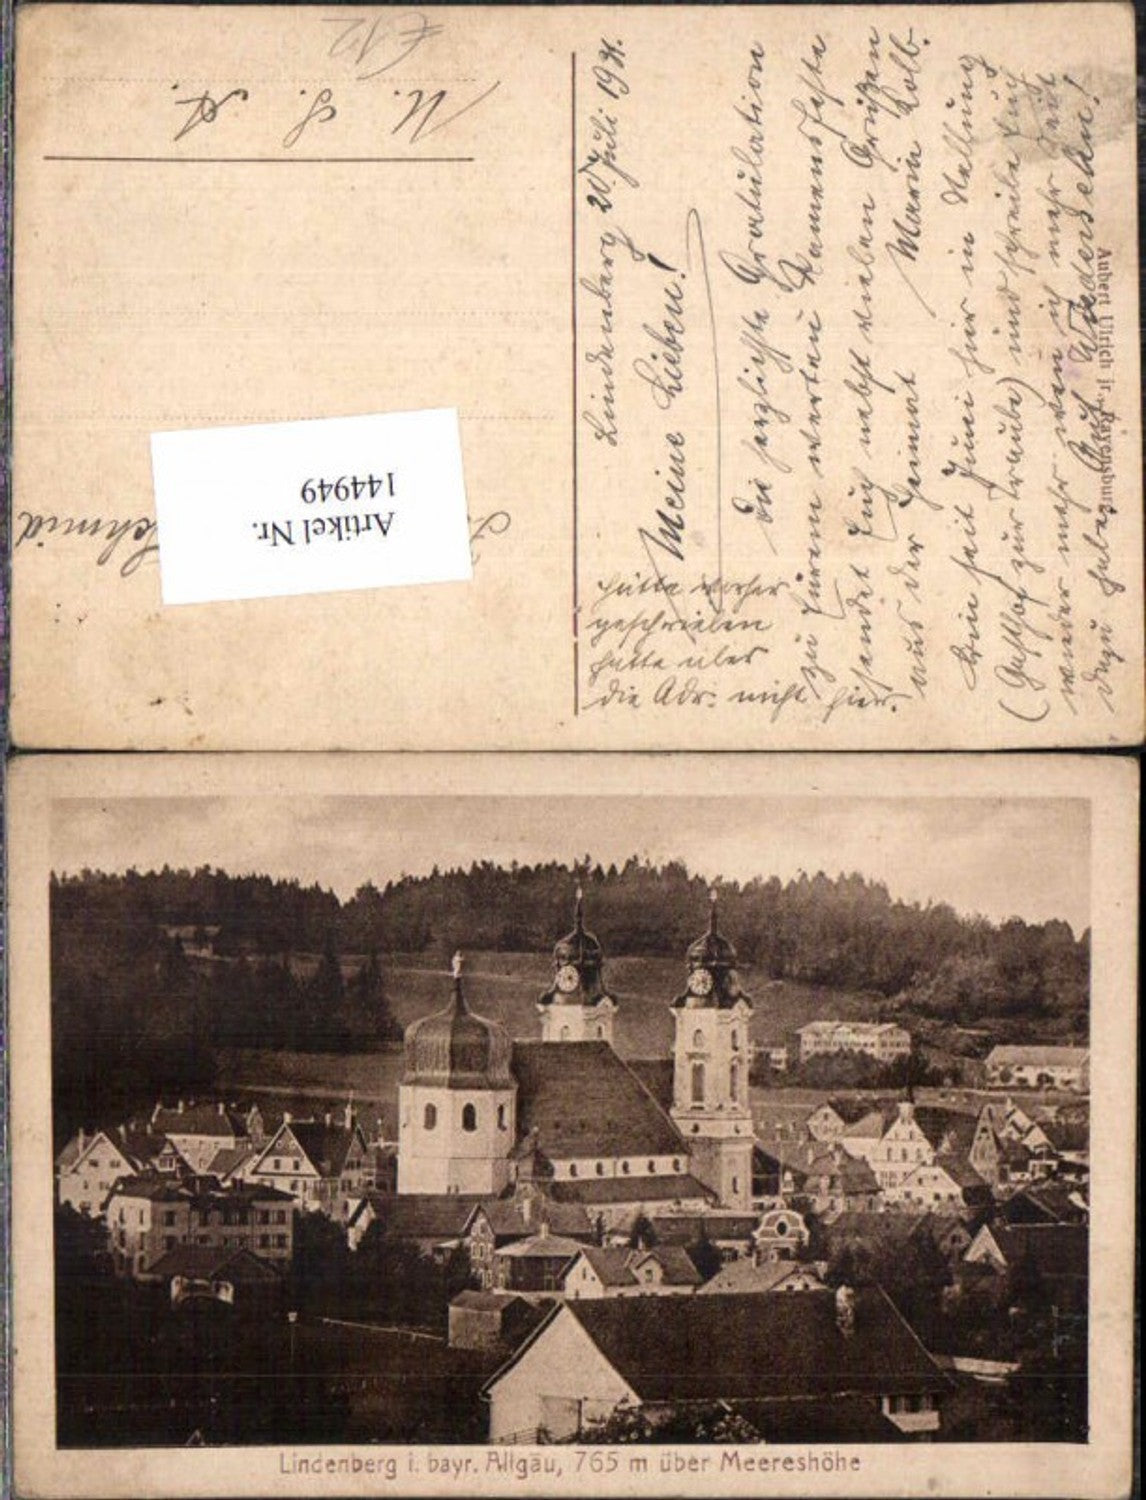 Lindenberg 20. Juli 1921.
Meine Lieben!
Die herzlichste Gratulation
zu Eurem werten Namensfeste
sendet Euch nebst vielen Grüßen
aus der Heimat Marie Kolb.
Bin seit Juni hier in Stellung
(Gasthof zur Traube) und schreibe Euch
wieder mehr wen ich mehr Zeit
dazu habe. Auf Wiedersehn!
hätte vorher
geschrieben
hatte aber
die Adr: nicht hier.
Schmid
U. S. A.
€12
Artikel Nr.
144949
Aubert Ulrich jr., Ravensburg
Lindenberg i. bayr. Allgäu, 765 m über Meereshöhe